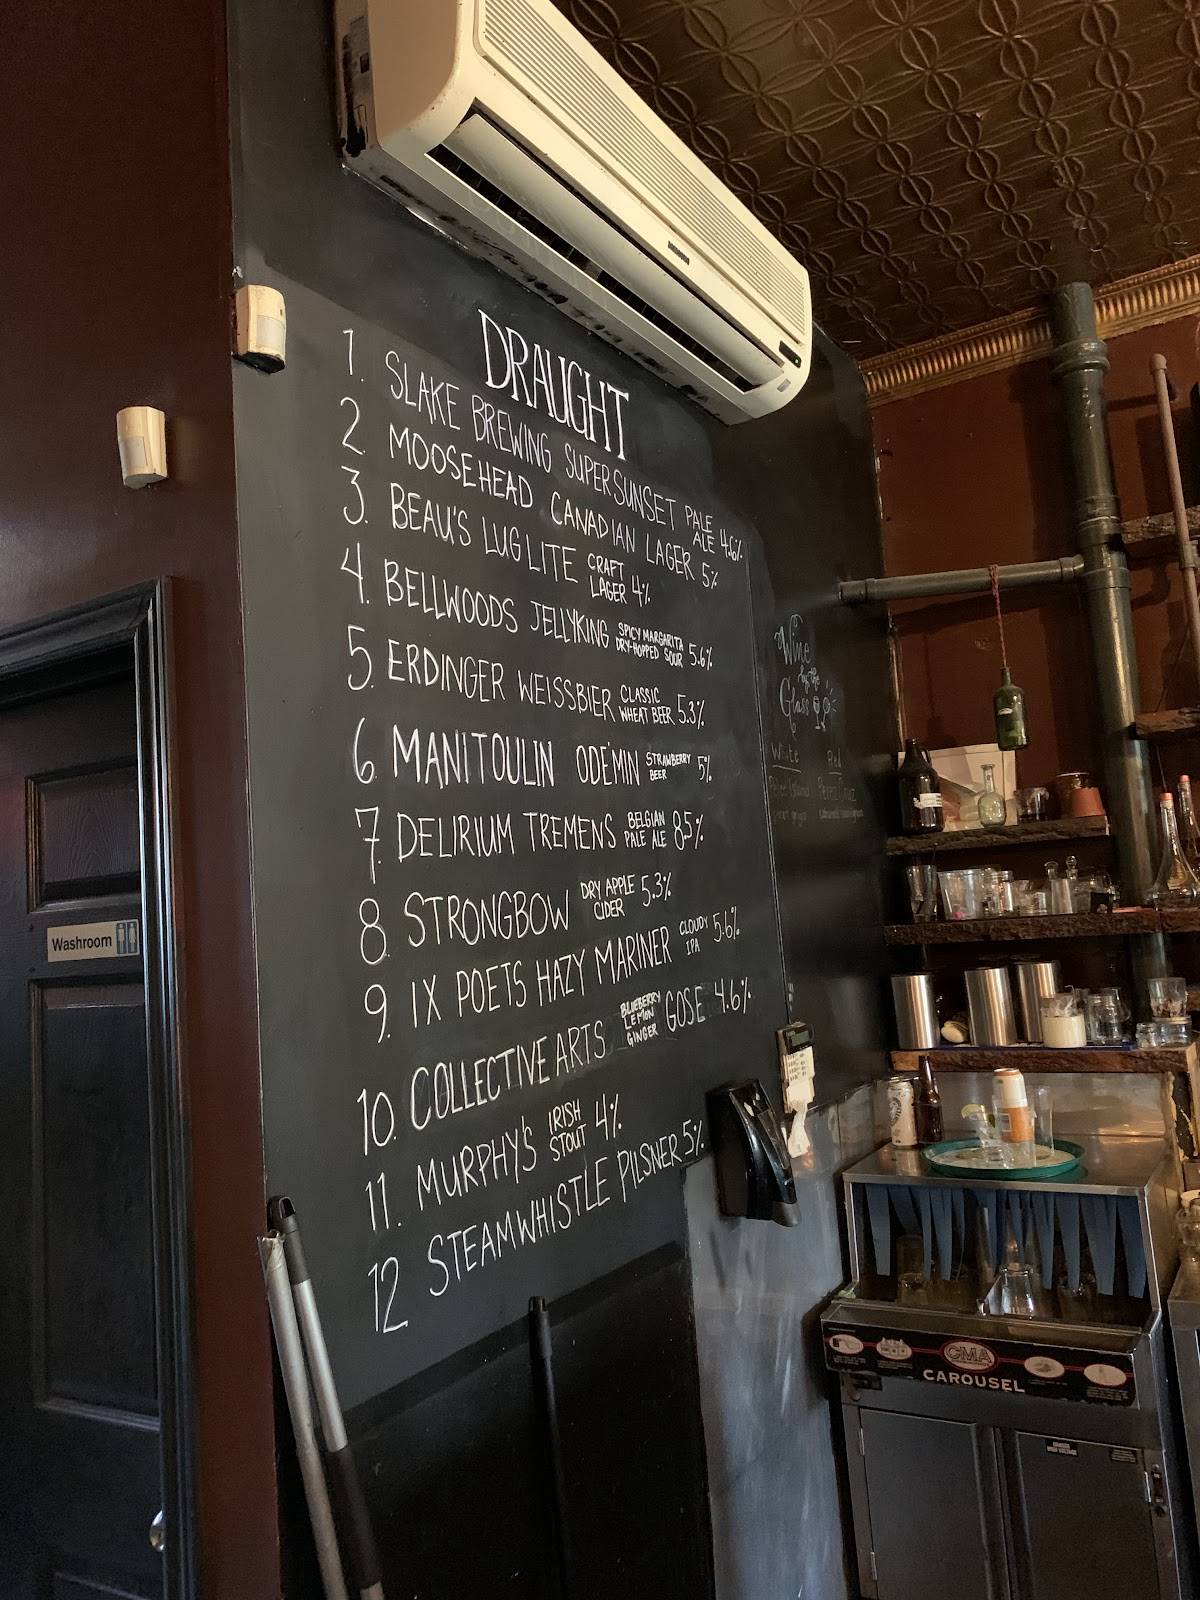 DRAUGHT
1. SLAKE BREWING SUPERSUNSET PALE ALE 4.6%
2. MOOSEHEAD CANADIAN LAGER 5%
3. BEAU'S LUG LITE CRAFT LAGER 4%
4. BELLWOODS JELLYKING SPICY MARGARITA DRY-HOPPED SOUR 5.6%
5. ERDINGER WEISSBIER CLASSIC WHEAT BEER 5.3%
6 MANITOULIN ODE'MIN STRAWBERRY BEER 5%
7. DELIRIUM TREMENS BELGIAN PALE ALE 8.5%
8. STRONGBOW DRY APPLE CIDER 5.3%
9. IX POETS HAZY MARINER CLOUDY IPA 5.6%
10. COLLECTIVE ARTS BLUEBERRY LEMON GINGER GOSE 4.6%
11. MURPHY'S IRISH STOUT 4%
12 STEAMWHISTLE PILSNER 5%
Wine
by the
Glass
White
Red
Pelee Island
Perez Cruz
Washroom
CMA
CAROUSEL